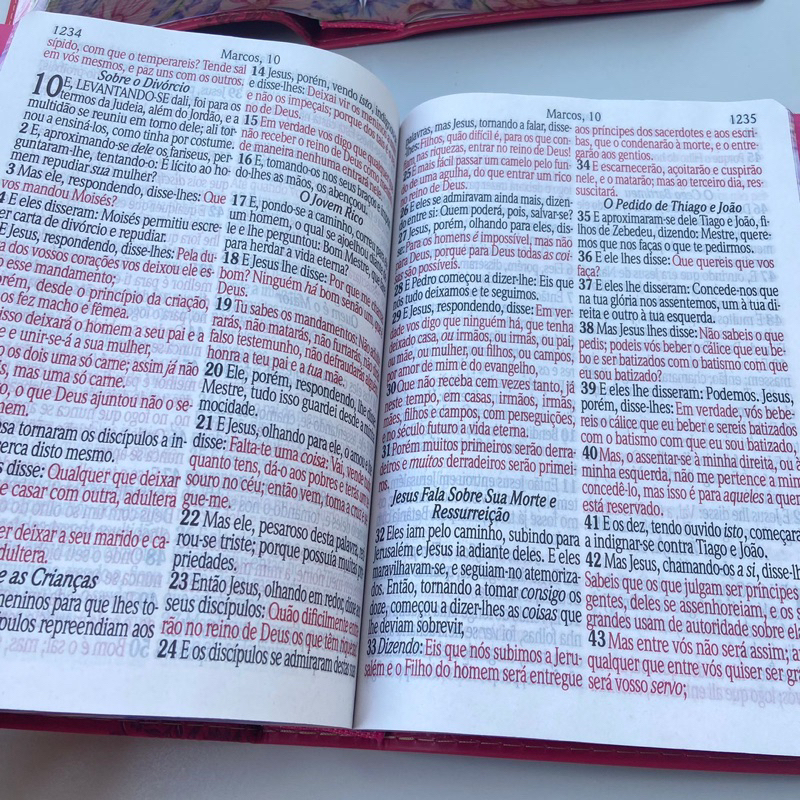 1234
Marcos, 10
sípido, com que o temperareis? Tende sal
em vós mesmos, e paz uns com os outros.
Sobre o Divórcio
10 E, LEVANTANDO-SE dali, foi para os
termos da Judeia, além do Jordão, e a
multidão se reuniu em torno dele; ali tor-
nou a ensiná-los, como tinha por costume.
2 E, aproximando-se dele os fariseus, per-
guntaram-lhe, tentando-o: É lícito ao ho-
mem repudiar sua mulher?
3 Mas ele, respondendo, disse-lhes: Que
vos mandou Moisés?
4 E eles disseram: Moisés permitiu escre-
er carta de divórcio e repudiar.
E Jesus, respondendo, disse-lhes: Pela du-
a dos vossos corações vos deixou ele es-
o esse mandamento;
orém, desde o princípio da criação,
os fez macho e fêmea.
isso deixará o homem a seu pai e a
e e unir-se-á a sua mulher,
o os dois uma só carne; assim já não
s, mas uma só carne.
o, o que Deus ajuntou não o se-
mem.
asa tornaram os discípulos a in-
cerca disto mesmo.
s disse: Qualquer que deixar
e casar com outra, adultera
er deixar a seu marido e ca-
dultera.
e as Crianças
meninos para que lhes to-
pulos repreendiam aos
14 Jesus, porém, vendo isto,
e disse-lhes: Deixai vir os
e não os impeçais; porque dos
reino de Deus.
15 Em verdade vos digo que
não receber o reino de Deus como
de maneira nenhuma entrará nele.
16 E, tomando-os nos seus braços
lhes as mãos, os abençoou.
O Jovem Rico
17 E, pondo-se a caminho, correu
um homem, o qual se ajoelhou
e lhe perguntou: Bom Mestre, que
para herdar a vida eterna?
18 E Jesus lhe disse: Por que me
bom? Ninguém há bom senão um
Deus.
19 Tu sabes os mandamentos: Não
rarás, não matarás, não furtarás, não
falso testemunho, não defraudarás
honra a teu pai e a tua mãe.
20 Ele, porém, respondendo, lhe
Mestre, tudo isso guardei desde a
mocidade.
21 E Jesus, olhando para ele, o amou e
disse: Falta-te uma coisa: Vai, vende
quanto tens, dá-o aos pobres e terás um
souro no céu; então vem, toma a cruz
gue-me.
22 Mas ele, pesaroso desta palavra,
rou-se triste; porque possuía muitas
priedades.
23 Então Jesus, olhando em redor, disse aos
seus discípulos: Quão dificilmente
rão no reino de Deus os que têm
24 E os discípulos se admiraram destas suas
Marcos, 10
1235
palavras, mas Jesus, tornando a falar, disse-
lhes: Filhos, quão difícil é, para os que con-
fiam nas riquezas, entrar no reino de Deus!
25 É mais fácil passar um camelo pelo fun-
do de uma agulha, do que entrar um rico
no reino de Deus.
26 E eles se admiravam ainda mais, dizen-
do entre si: Quem poderá, pois, salvar-se?
27 Jesus, porém, olhando para eles, dis-
se: Para os homens é impossível, mas não
para Deus, porque para Deus todas as coi-
sas são possíveis.
28 E Pedro começou a dizer-lhe: Eis que
nós tudo deixamos e te seguimos.
29 E Jesus, respondendo, disse: Em ver-
dade vos digo que ninguém há, que tenha
deixado casa, ou irmãos, ou irmãs, ou pai,
ou mãe, ou mulher, ou filhos, ou campos,
por amor de mim e do evangelho,
30 Que não receba cem vezes tanto, já
neste tempo, em casas, irmãos, irmãs,
mães, filhos e campos, com perseguições,
e no século futuro a vida eterna.
31 Porém muitos primeiros serão derra-
deiros e muitos derradeiros serão primei-
ros.
Jesus Fala Sobre Sua Morte e
Ressurreição
32 Eles iam pelo caminho, subindo para
Jerusalém e Jesus ia adiante deles. E eles
maravilhavam-se, e seguiam-no atemoriza-
dos. Então, tornando a tomar consigo os
doze, começou a dizer-lhes as coisas que
lhe deviam sobrevir,
33 Dizendo: Eis que nós subimos a Jeru-
salém e o Filho do homem será entregue
aos príncipes dos sacerdotes e aos escri-
bas, que o condenarão à morte, e o entre-
garão aos gentios.
34 E escarnecerão, açoitarão e cuspirão
nele, e o matarão; mas ao terceiro dia, res-
suscitará.
O Pedido de Thiago e João
35 E aproximaram-se dele Tiago e João, fi-
lhos de Zebedeu, dizendo: Mestre, quere-
mos que nos faças o que te pedirmos.
36 E ele lhes disse: Que quereis que vos
faça?
37 E eles lhe disseram: Concede-nos que
na tua glória nos assentemos, um à tua di-
reita e outro à tua esquerda.
38 Mas Jesus lhes disse: Não sabeis o que
pedis; podeis vós beber o cálice que eu be-
bo e ser batizados com o batismo com que
eu sou batizado?
39 E eles lhe disseram: Podemos. Jesus,
porém, disse-lhes: Em verdade, vós bebe-
reis o cálice que eu beber e sereis batizados
com o batismo com que eu sou batizado,
40 Mas, o assentar-se à minha direita, ou à
minha esquerda, não me pertence a mim
concedê-lo, mas isso é para aqueles a quem
está reservado.
41 E os dez, tendo ouvido isto, começara
a indignar-se contra Tiago e João.
42 Mas Jesus, chamando-os a si, disse-lh
Sabeis que os que julgam ser príncipes
gentes, deles se assenhoreiam, e os s
grandes usam de autoridade sobre ela
43 Mas entre vós não será assim; an
qualquer que entre vós quiser ser gra
será vosso servo;